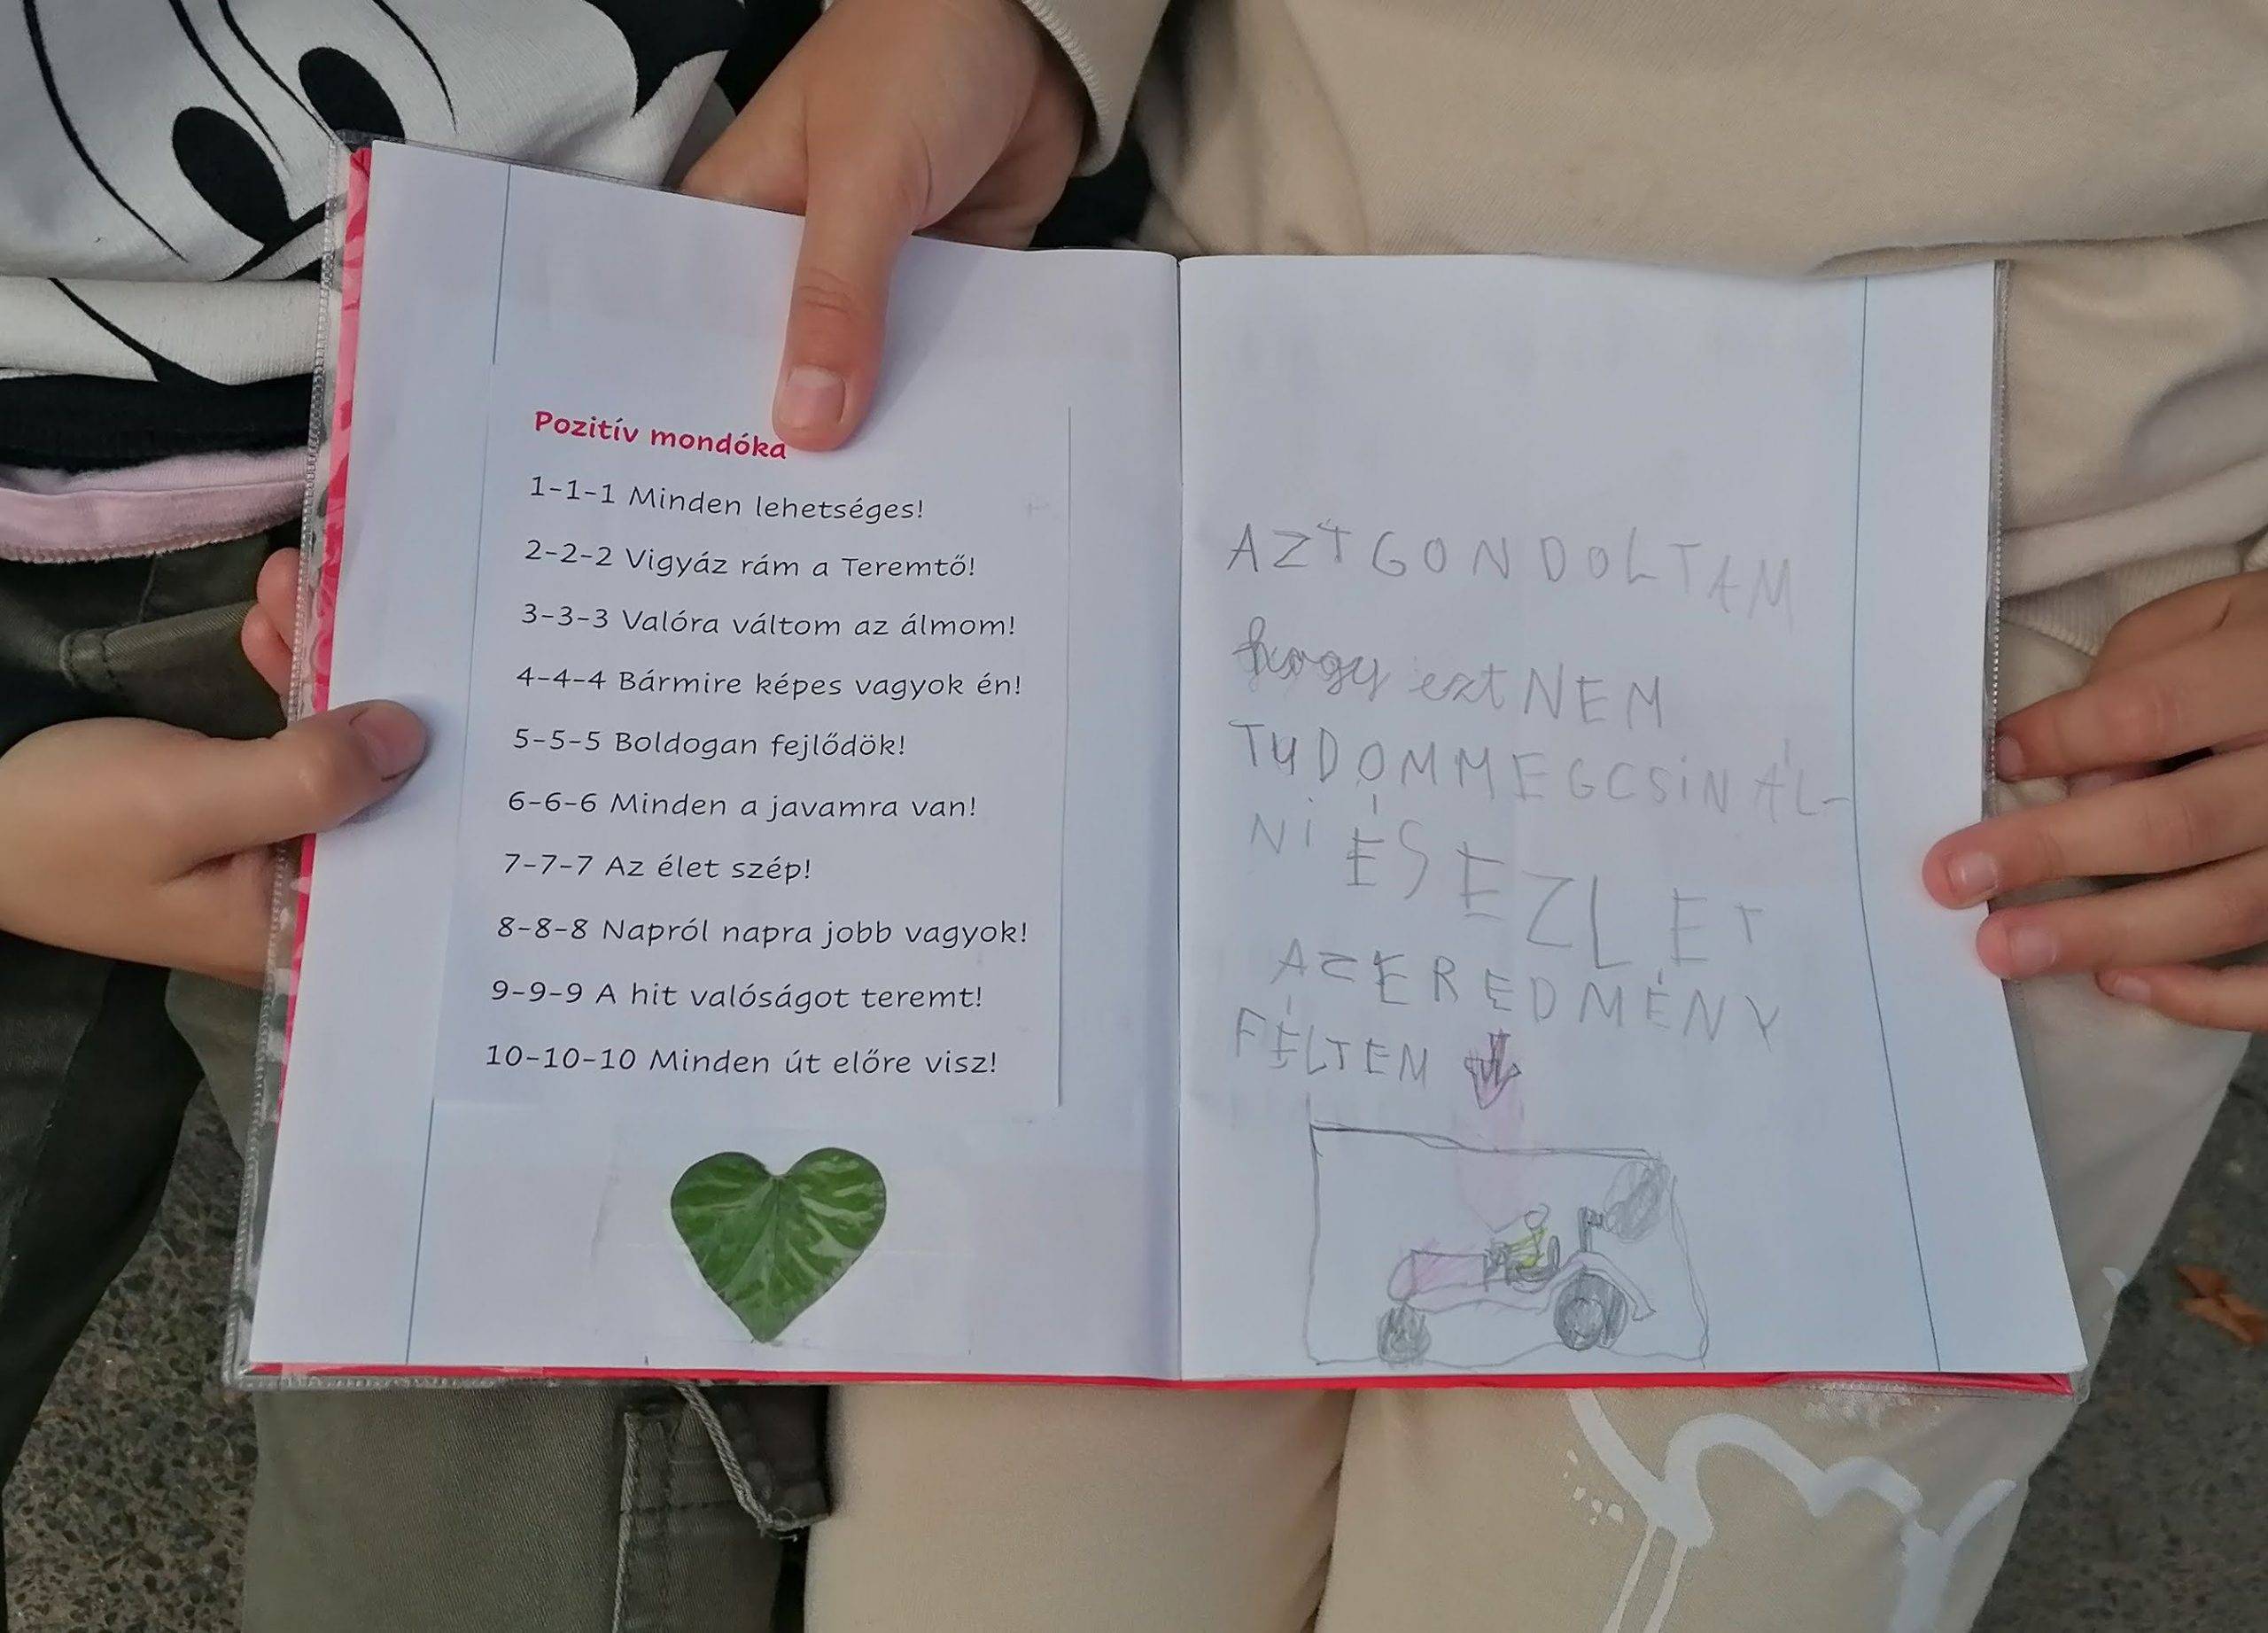 Pozitív mondóka
1-1-1 Minden lehetséges!
2-2-2 Vigyáz rám a Teremtő!
3-3-3 Valóra váltom az álmom!
4-4-4 Bármire képes vagyok én!
5-5-5 Boldogan fejlődök!
6-6-6 Minden a javamra van!
7-7-7 Az élet szép!
8-8-8 Napról napra jobb vagyok!
9-9-9 A hit valóságot teremt!
10-10-10 Minden út előre visz!
AZT GONDOLTAM
hogy ezt NEM
TUDOM MEGCSiNÁL-
Ni ÉS EZ LET
AZ EREDMÉNY
FÉLTEM